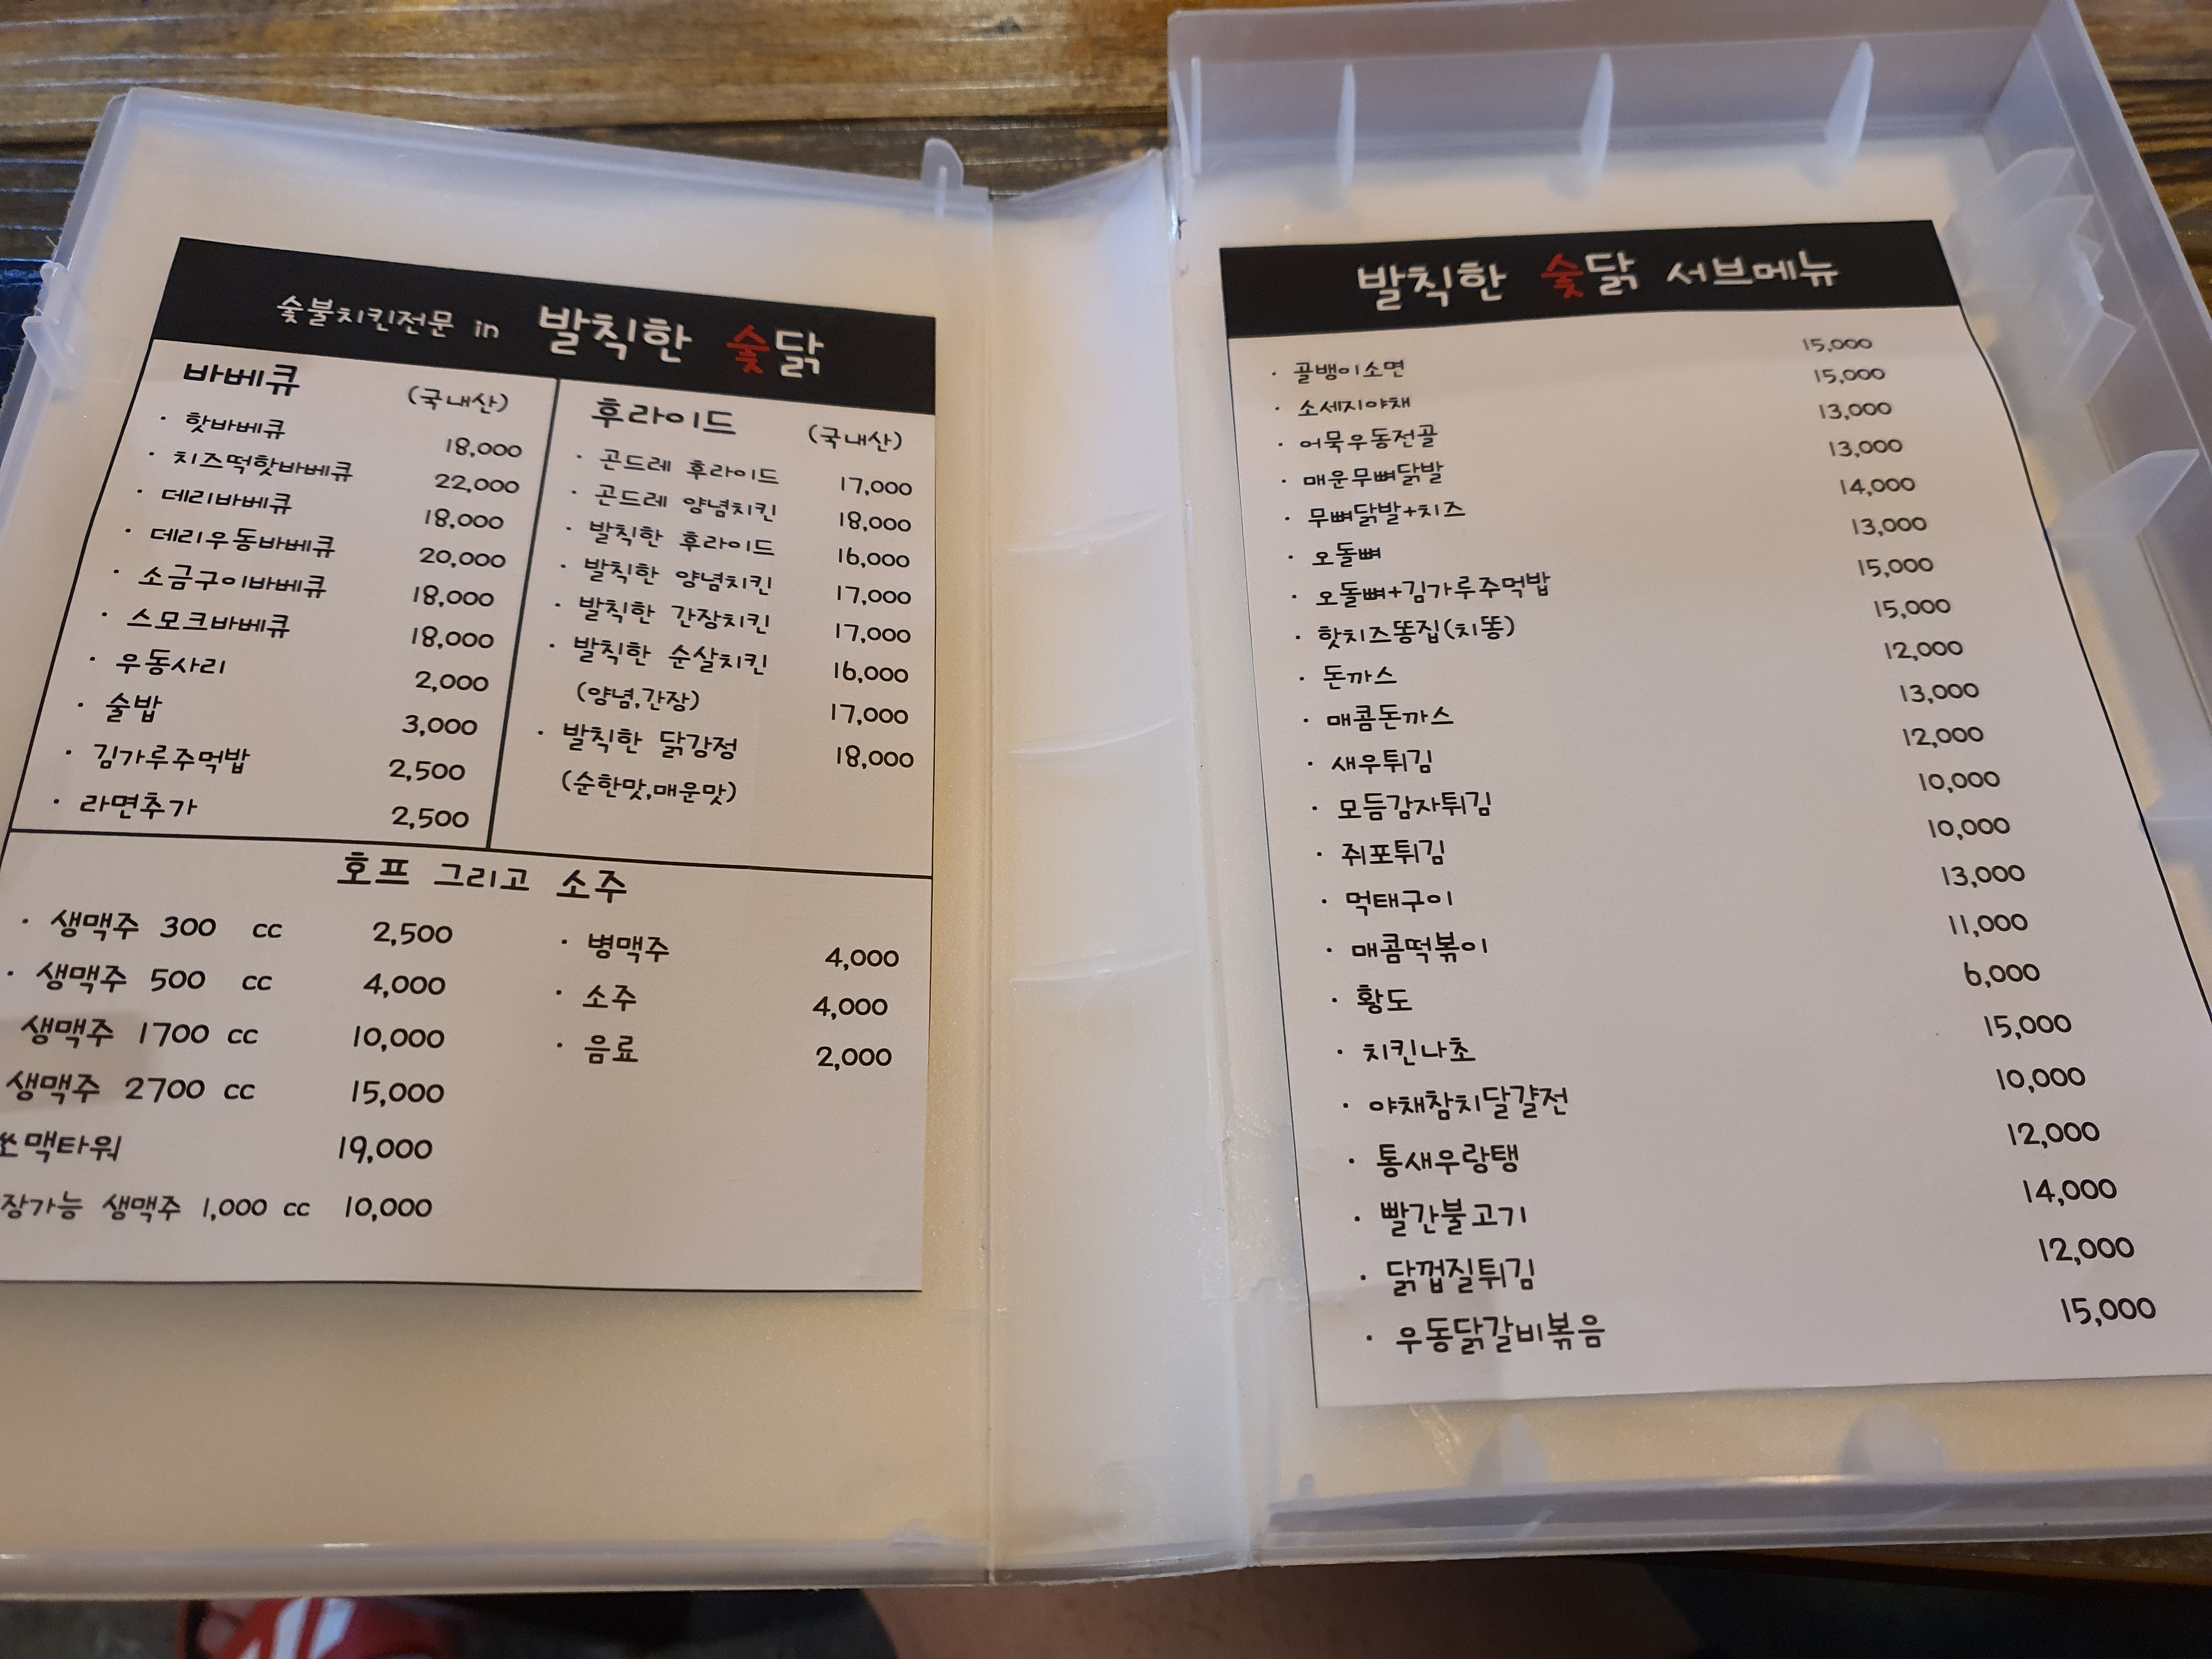 숯불치킨전문 in 발칙한 숯닭
바베큐 (국내산)
· 핫바베큐 18,000
· 치즈떡핫바베큐 22,000
· 데리바베큐 18,000
· 데리우동바베큐 20,000
· 소금구이바베큐 18,000
· 스모크바베큐 18,000
· 우동사리 2,000
· 술밥 3,000
· 김가루주먹밥 2,500
· 라면추가 2,500
후라이드 (국내산)
· 곤드레 후라이드 17,000
· 곤드레 양념치킨 18,000
· 발칙한 후라이드 16,000
· 발칙한 양념치킨 17,000
· 발칙한 간장치킨 17,000
· 발칙한 순살치킨 16,000
(양념,간장) 17,000
· 발칙한 닭강정 18,000
(순한맛,매운맛)
호프 그리고 소주
· 생맥주 300 cc 2,500
· 생맥주 500 cc 4,000
생맥주 1700 cc 10,000
생맥주 2700 cc 15,000
쏘맥타워 19,000
장가능 생맥주 1,000 cc 10,000
· 병맥주 4,000
· 소주 4,000
· 음료 2,000
발칙한 숯닭 서브메뉴
· 골뱅이소면 15,000
· 소세지야채 15,000
· 어묵우동전골 13,000
· 매운무뼈닭발 13,000
· 무뼈닭발+치즈 14,000
· 오돌뼈 13,000
· 오돌뼈+김가루주먹밥 15,000
· 핫치즈똥집(치똥) 15,000
· 돈까스 12,000
· 매콤돈까스 13,000
· 새우튀김 12,000
· 모듬감자튀김 10,000
· 쥐포튀김 10,000
· 먹태구이 13,000
· 매콤떡볶이 11,000
· 황도 6,000
· 치킨나초 15,000
· 야채참치달걀전 10,000
· 통새우랑탱 12,000
· 빨간불고기 14,000
· 닭껍질튀김 12,000
· 우동닭갈비볶음 15,000